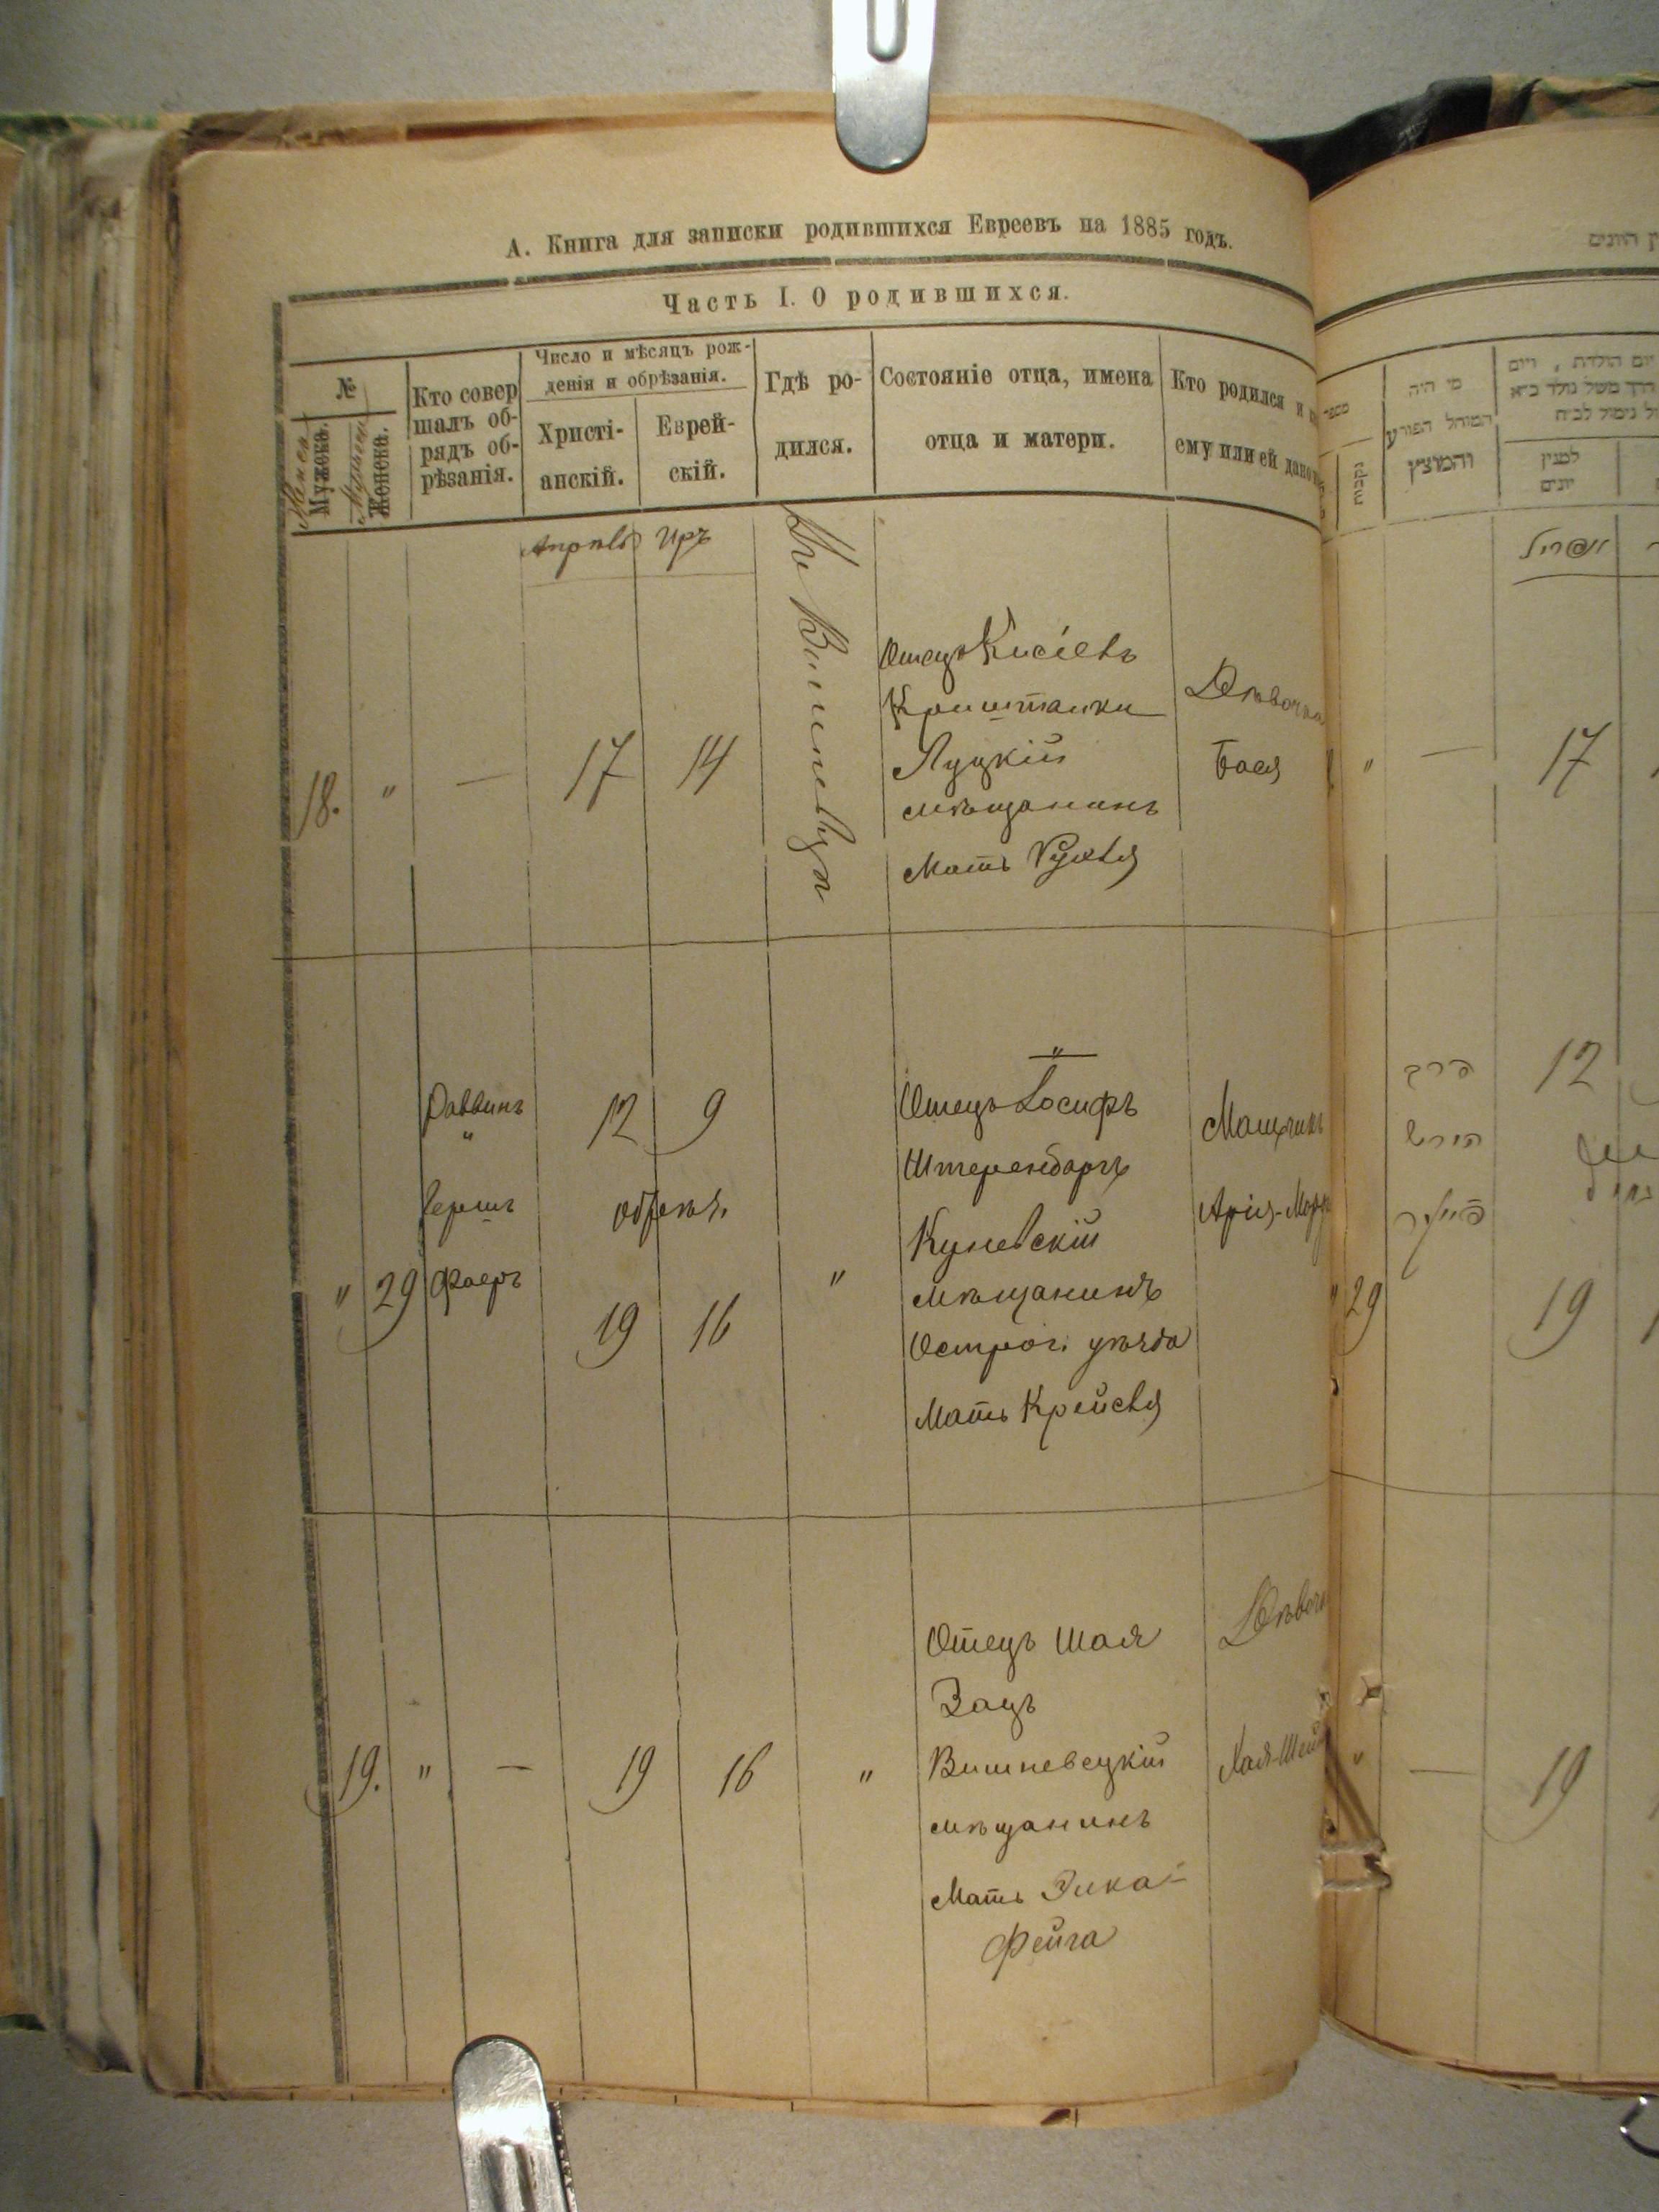 А. Книга для записки родившихся Евреевъ на 1885 годъ.
Часть I. О родившихся.
№
Мужеска.
Женска.
Кто совер
шалъ об-
рядъ об-
рѣзанія.
Число и мѣсяцъ рож-
денія и обрѣзанія.
Христі-
анскій.
Еврей-
скій.
Гдѣ ро-
дился.
Состояніе отца, имена
отца и матери.
Кто родился и
ему или ей дано
Апрѣль Иръ
18. " — 17 14
Въ Вишневцѣ
Отецъ Кисіевъ
Луцкій
мѣщанинъ
Мать Рухля
Дѣвочка
Бася
" 29
Раввинъ
"
Герш
Фаеръ
12 9
обрѣз.
19 16
"
"
Отецъ Іосифъ
Штеренбаргъ
Куневскій
мѣщанинъ
Острог. уѣзда
Мать Крейсея
Мальчикъ
Арія-
19. " — 19 16 "
Отецъ Шая
Зацъ
Вишневецкій
мѣщанинъ
Мать Зика-
Фейга
Дѣвочк
Хая-Шей
מי היה
המוהל הפורע
והמוצץ
יום הולדת , ויום
למנין
יונים
נקבות
אפריל
" — 17
29
הירש
פייער
12
19
" — 19